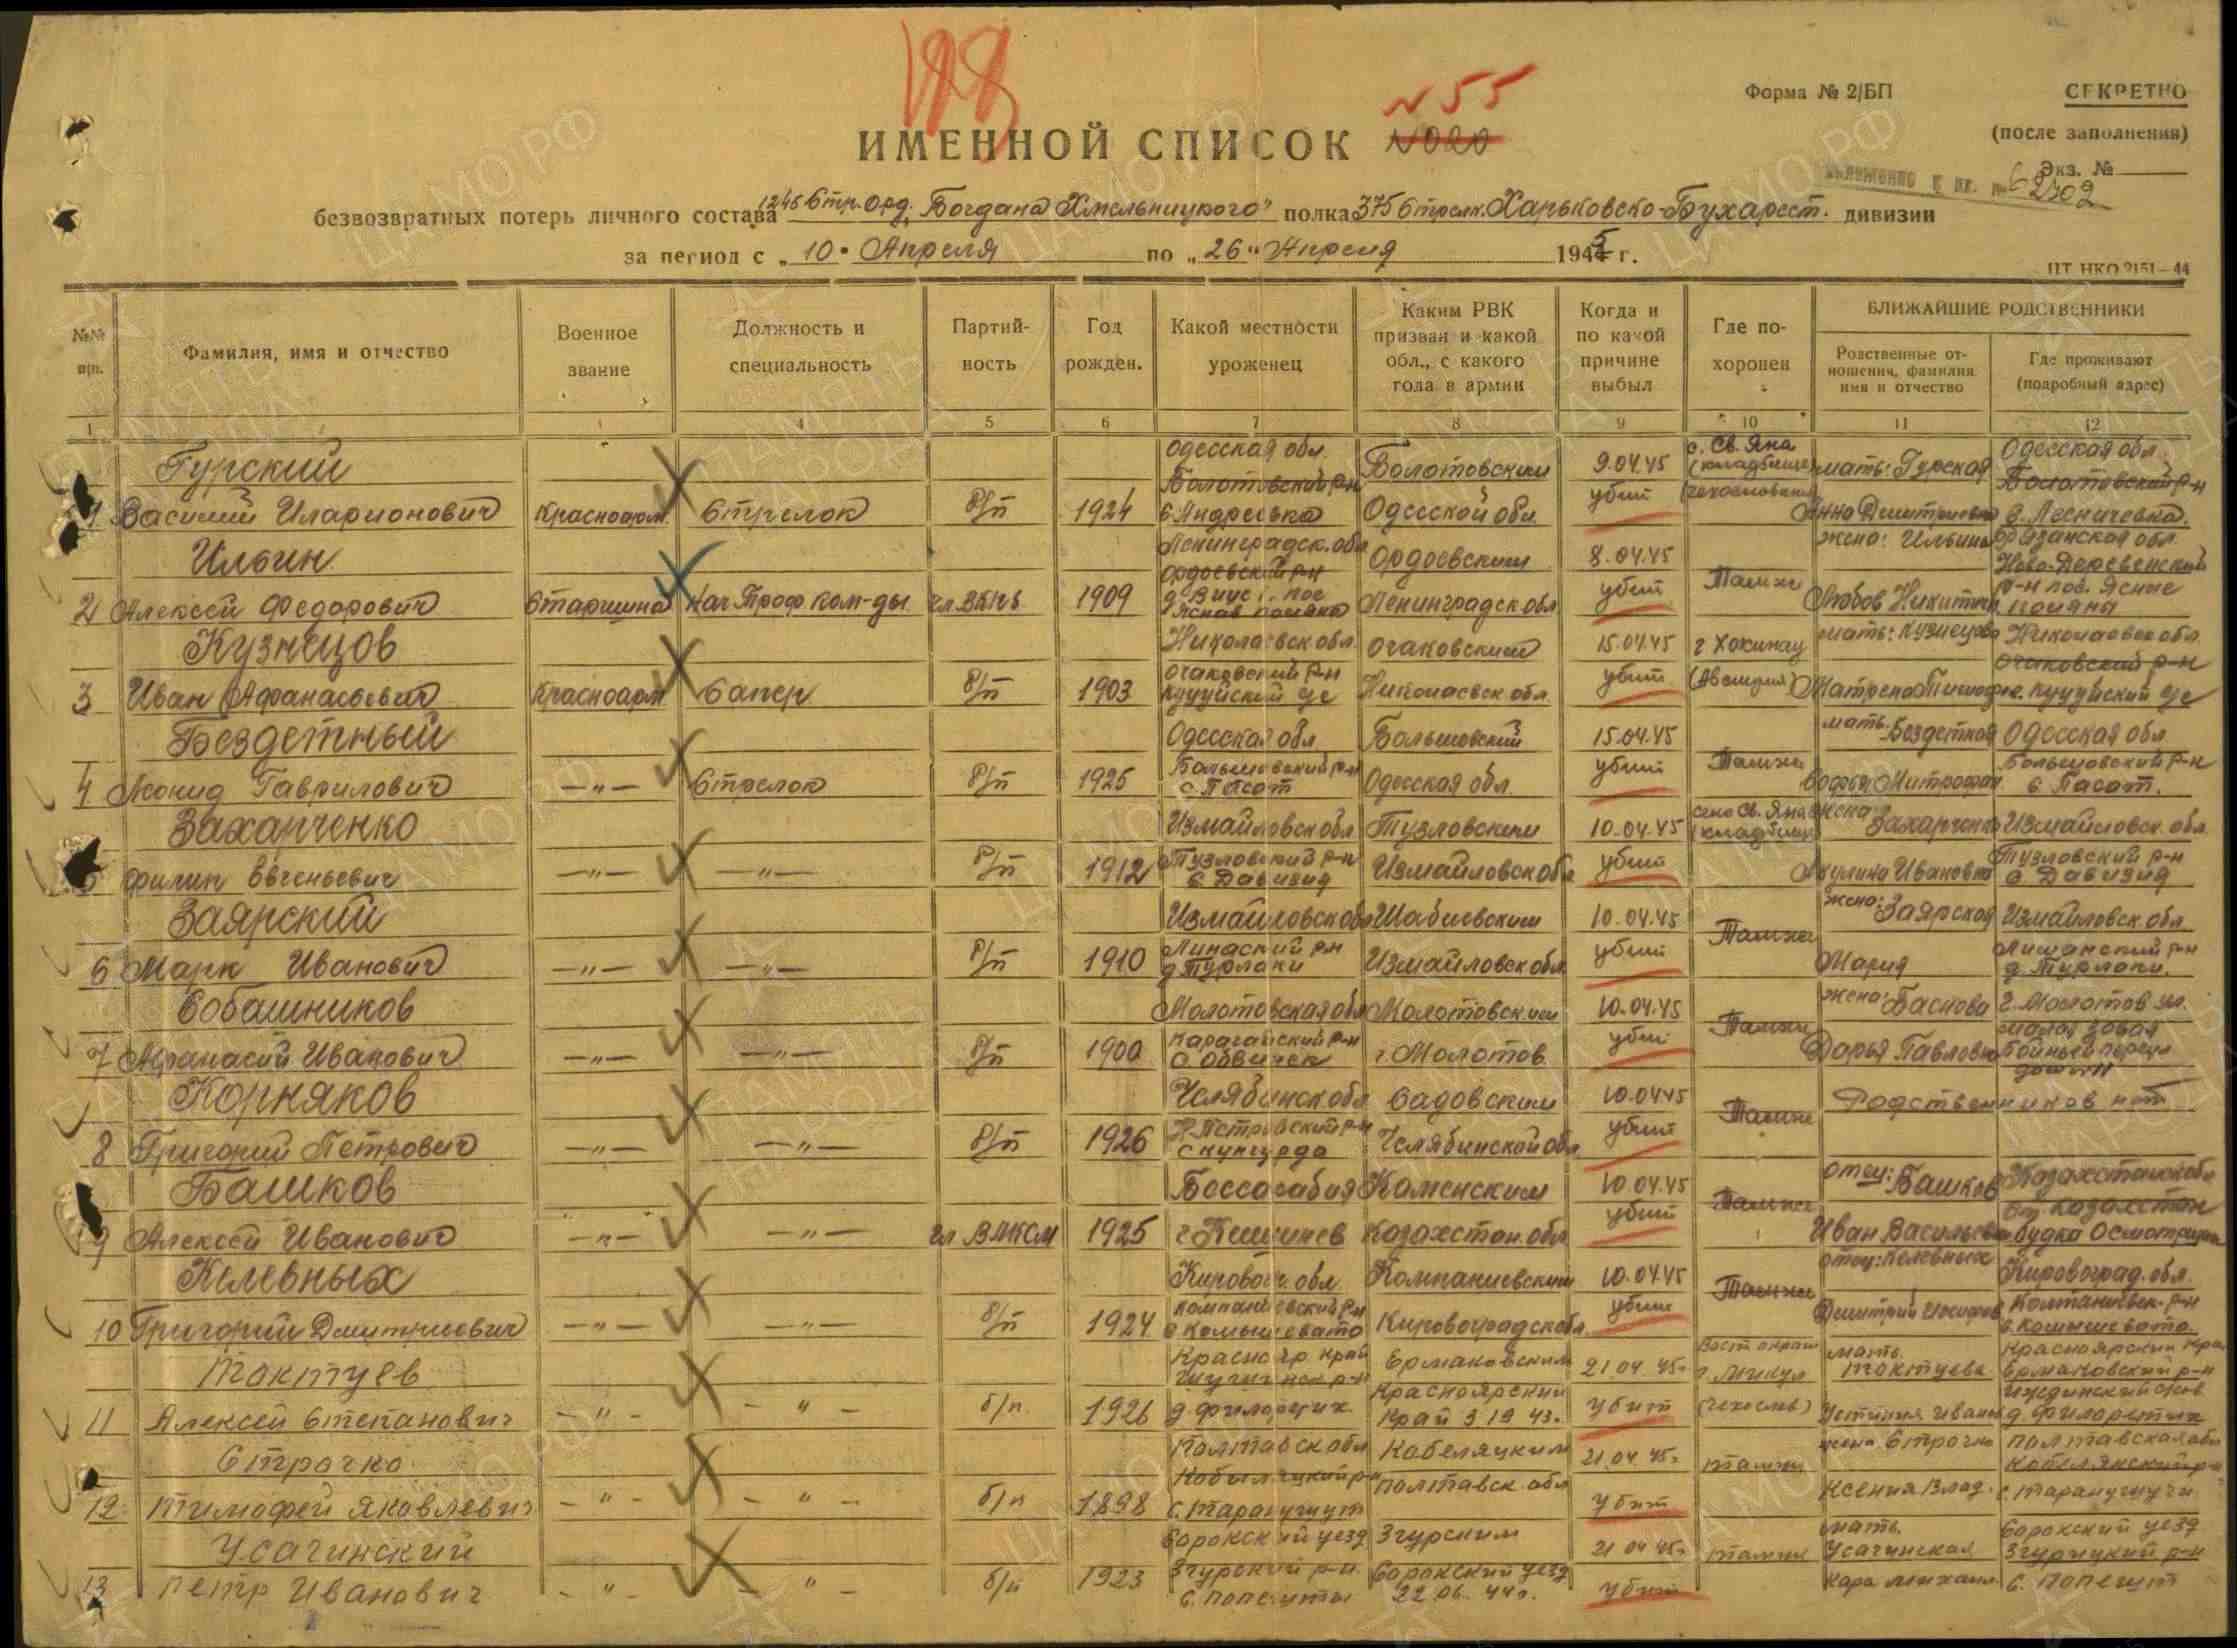 188
№ 55
Форма № 2/БП
СЕКРЕТНО
ИМЕННОЙ СПИСОК №020
(после заполнения)
Экз. №
62702
безвозвратных потерь личного состава 1245 Стр. Орд. „Богдана Хмельницкого" полка 375 Стрелк. Харьковско-Бухарест. дивизии
за период с „10" Апреля по „26" Апреля 1945 г.
ЦТ НКО 2151–44
№№ п/п.
Фамилия, имя и отчество
Военное звание
Должность и специальность
Партий-ность
Год рожден.
Какой местности уроженец
Каким РВК призван и какой обл., с какого года в армии
Когда и по какой причине выбыл
Где по-хоронен
БЛИЖАЙШИЕ РОДСТВЕННИКИ
Родственные от-ношения, фамилия имя и отчество
Где проживают (подробный адрес)
1 4 5 6 7 8 9 10 11 12
Гурский Одесская обл. с. Св. Яна Одесская обл.
Болотовский р-н Болотовским 9.04.45 (кладбище) мать: Гурская Болотовский р-н
1 Василий Иларионович Красноарм. Стрелок б/п 1924 с Андреевка Одесской обл. убит Анна Дмитриевна с. Лесничевка.
Ильин Ленинградск. обл. Ордоевским 8.04.45 жена: Ильина Рязанская обл.
ордоевский р-н Ново-Деревенский
2 Алексей Федорович Старшина Нач Троф ком-ды чл. ВКПб 1909 Ленинградск обл убит Там же Любов Никитич р-н пос. Ясные поляны
Кузнецов Николаевск обл. Очаковским 15.04.45 г Хокинау мать: Кузнецова Николаевск обл.
очаковский р-н очаковский р-н
3 Иван Афанасьевич Красноарм Сапер б/п 1903 Николаевск обл. убит (Австрия) Матрена Тимоф.
Бездетный Одесская обл Большовский 15.04.45 мать: Бездетная Одесская обл.
4 Леонид Гаврилович —"— Стрелок б/п 1925 Большовский р-н с Пасат Одесская обл. убит Там же Софья Митрофан Большовский р-н с Пасат.
Захарченко Измайловск обл. Тузловским 10.04.45 село Св. Яна (кладбище) жена Захарченко Измайловск. обл.
5 Филип Евгеньевич —"— —"— б/п 1912 Тузловский р-н с Давизия Измайловск обл убит Акулина Ивановна Тузловский р-н с Давизия
Заярский Измайловск обл Шабиевским 10.04.45 жена: Заярская Измайловск. обл
6 Марк Иванович —"— —"— б/п 1910 Линаский р-н д Турлаки Измайловск обл. убит Там же Мария Лиманский р-н д. Турлаки.
Собашников Молотовская обл Молотовским 10.04.45 жена: Баскова г. Молотов ул.
7 Афанасий Иванович —"— —"— б/п 1900 Карагайский р-н с Обвинск г. Молотов убит Там же Дарья Павловна
Корняков Челябинск обл Садовским 10.04.45 Родственников нет
8 Григорий Петрович —"— —"— б/п 1926 Н-Петровский р-н с Кунгурда Челябинской обл убит Там же
Башков Бессарабия Каменским 10.04.45 отец: Башков Казахстанск обл
9 Алексей Иванович —"— —"— чл ВЛКСМ 1925 г Кишинев Казахстан. обл убит Там же Иван Васильевич ст. Казахстан будка Осмотрщика
Келевных Кировогр. обл Компаниевским 10.04.45 отец: Келевных Кировоград. обл.
10 Григорий Дмитриевич —"— —"— б/п 1924 Компаниевский р-н с Комышевато Кировоградск обл. убит Там же Дмитрий Компаниевск. р-н с. Комышевато
Тактуев Краснояр. край Ермаковским 21.04.45г. Вост окраин г. Микул мать Тактуева Красноярский край Ермаковский р-н
11 Алексей Степанович —"— —"— б/п. 1926 Красноярский край в 1943. Убит (Чехослов) Устиния Иванов
Строчко Полтавск обл Кабеляцким 21.04.45г. там же жена Строчко Полтавская обл
12 Тимофей Яковлевич —"— —"— б/п 1898 Полтавск. обл Убит Ксения Влад.
Усачинский Сорокский уезд Згурским 21.04.45г. там же мать Усачинская Сорокский уезд
13 Петр Иванович —"— —"— б/п 1923 Згурский р-н с. Попешуты Сорокский уезд 22.06.44г. Убит Кара Михаил. Згурицкий р-н с. Попешут